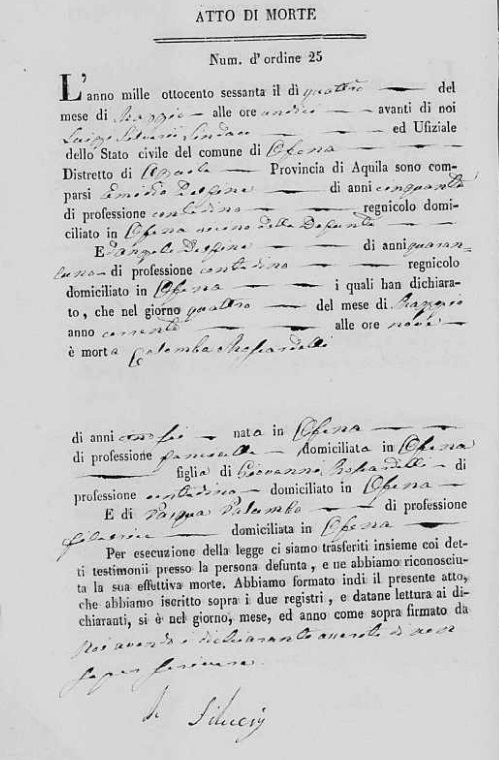 ATTO DI MORTE
Num. d'ordine 25
L'anno mille ottocento sessanta il dì quattro del
mese di Maggio alle ore undici avanti di noi
Luigi Silveri Sindaco ed Ufiziale
dello Stato civile del comune di Ofena
Distretto di Aquila Provincia di Aquila sono com-
parsi Emidio Delfine di anni cinquanta
di professione contadino regnicolo domi-
ciliato in Ofena vicino della Defunta
E d'Angelo Delfine di anni quaran-
tuno di professione contadino regnicolo
domiciliato in Ofena i quali han dichiara-
to, che nel giorno quattro del mese di Maggio
anno corrente alle ore nove
è morta Colomba
di anni nata in Ofena
di professione domiciliata in Ofena
figlia di Giovanni di
professione contadino domiciliato in Ofena
E di Pasqua Palumbo di professione
filatrice domiciliata in Ofena
Per esecuzione della legge ci siamo trasferiti insieme coi det-
ti testimonii presso la persona defunta, e ne abbiamo riconosciu-
ta la sua effettiva morte. Abbiamo formato indi il presente atto,
che abbiamo iscritto sopra i due registri, e datane lettura ai di-
chiaranti, si è nel giorno, mese, ed anno come sopra firmato da
Noi avendo i dichiaranti asserito di non
saper scrivere.